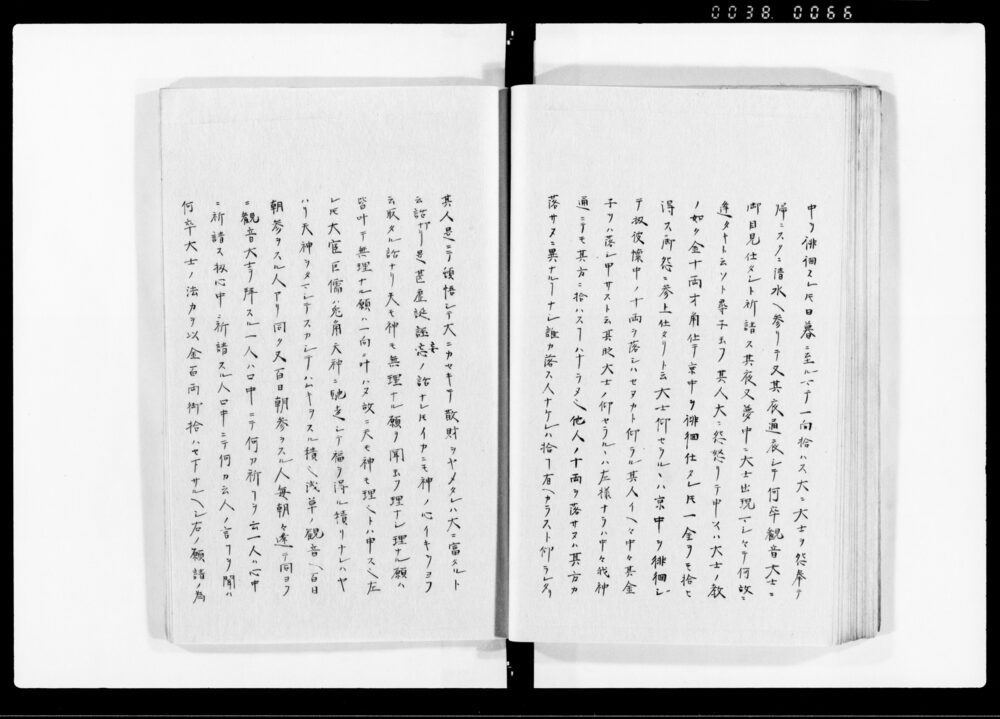 0038 0066
中ヲ徘徊スレ𪜈日暮ニ至ルマデ一向拾ハス大ニ大士ヲ怨奉テ
帰ニスクニ清水ヘ参リテ又其夜通夜シテ何卒観音大士ニ
御目見仕タシト祈請ス其夜又夢中ニ大士出現マシ〱テ何故ニ
逢タキト云ソト尋子玉フ其人大ニ怨怒リテ申スハ大士ノ教
ノ如ク金十両才角仕テ京中ヲ徘徊仕スレ𪜈一金ヲモ拾ヒ
得ス御怨ニ参上仕タリト云大士仰セラルヽハ京中ヲ徘徊シ
テ扨彼懐中ノ十両ヲ落シハセヌカト仰ラル其人イヘ〱中々其金
子ヲハ落シ申サスト云其時大士ノ仰セラルヽハ左様ナラハ中々我神
通ニテモ其方ニ拾ハスヿハナラヌ也他人ノ十両ヲ落サヌハ其方カ
落サヌニ異ナルヿナシ誰カ落ス人ナケレハ拾フ者ヘカラスト仰ラレタリ
其人是ニテ頓悟シテ大ニカセキテ散財ヲヤメタレハ大ニ富タルト
云話ナリ是甚虚誕誣妄ノ話ナレ𪜈イカニモ神ノ心イキヲヨク
云取タル話ナリ天モ神モ無理ナル願ヲ聞玉フ理ナシ理ナル願ハ
皆叶テ無理ナル願ハ一向ニ叶ハヌ故ニ天モ神モ理也トハ申ス也左
レ𪜈大宦巨儒ハ兎角天神ニ馳走シテ福ヲ得ル積リナレハヤ
ハリ天神ヲタマシテスカシテハムキヲスル積也浅草ノ観音ヘ百日
朝参ヲスル人アリ同ク又百日朝参ヲスル人毎朝々逢テ同ヨウ
ニ観音大士ヲ拝スル一人ハ口中ニテ何カ祈リヲ云一人ハ心中
ニ祈請ス扨心中ニ祈請スル人口中ニテ何カ云人ノ言ヲ聞ハ
何卒大士ノ法力ヲ以金百両御拾ハセ下サルヘシ右ノ願請ノ為